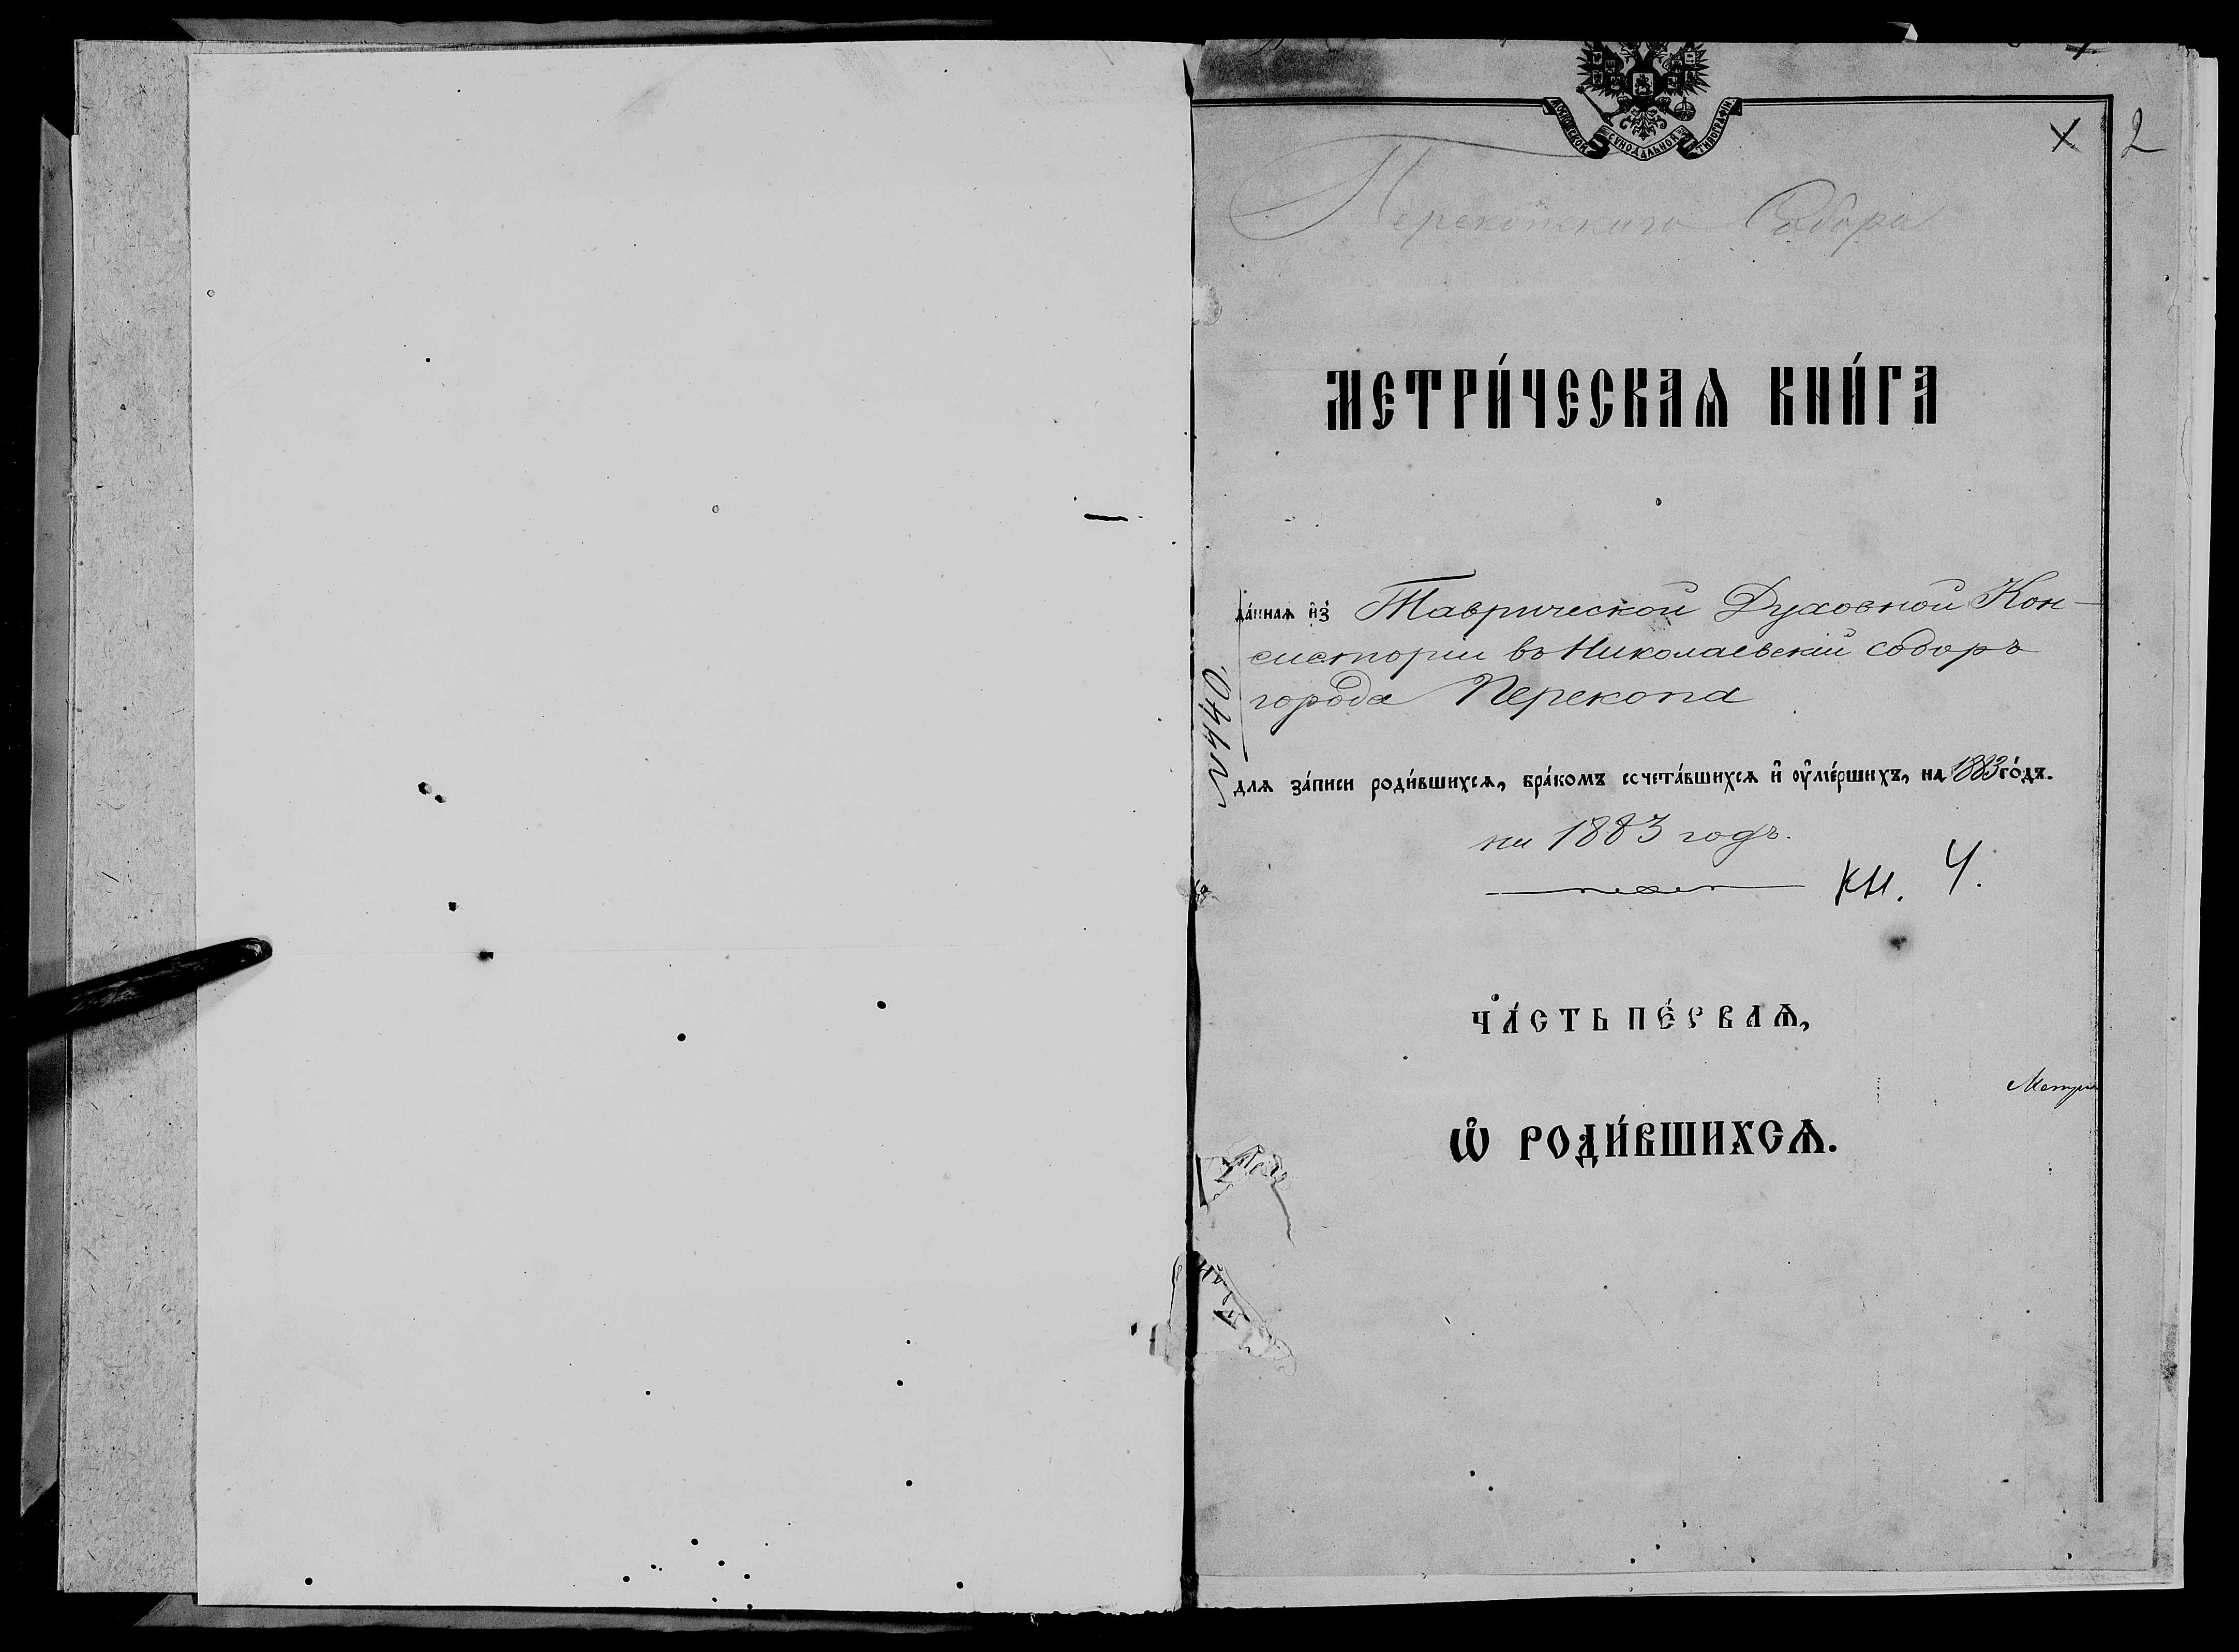 МОСКОВСКОЙ СѴНОДАЛЬНОЙ ТИПОГРАФІИ
2
Перекопскаго Собора
МЕТРИ́ЧЕСКАѦ КНИ́ГА
да́ннаѧ и҆з̾ Таврической Духовной Кон-
систоріи въ Николаевскій соборъ
города Перекопа
для за́писи роди́вшихсѧ, бра́комъ сочета́вшихсѧ и҆ оу҆ме́ршихъ, на 1883 го́дъ.
на 1883 годъ.
кн. 4.
ЧА́СТЬ ПЕ́РВАѦ,
Ѡ҆ РОДИ́ВШИХСѦ.